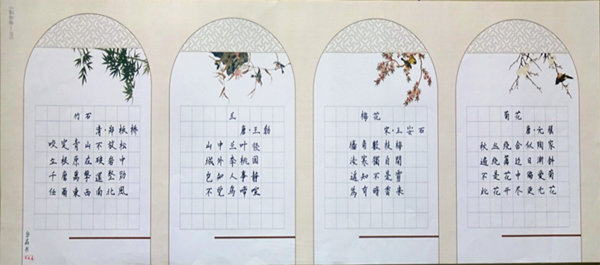 竹石
清·郑板桥
咬定青山不放松
立根原在破岩中
千磨萬擊還堅勁
任尔東西南北風
兰
唐·王勃
山中兰叶径
城外李桃园
岂知人事静
不觉鸟啼喧
梅花
宋·王安石
墙角数枝梅
凌寒獨自開
遥知不是雪
為有暗香来
菊花
唐·元稹
秋丛绕舍似陶家
遍绕篱边日渐斜
不是花中偏愛菊
此花开尽更无花